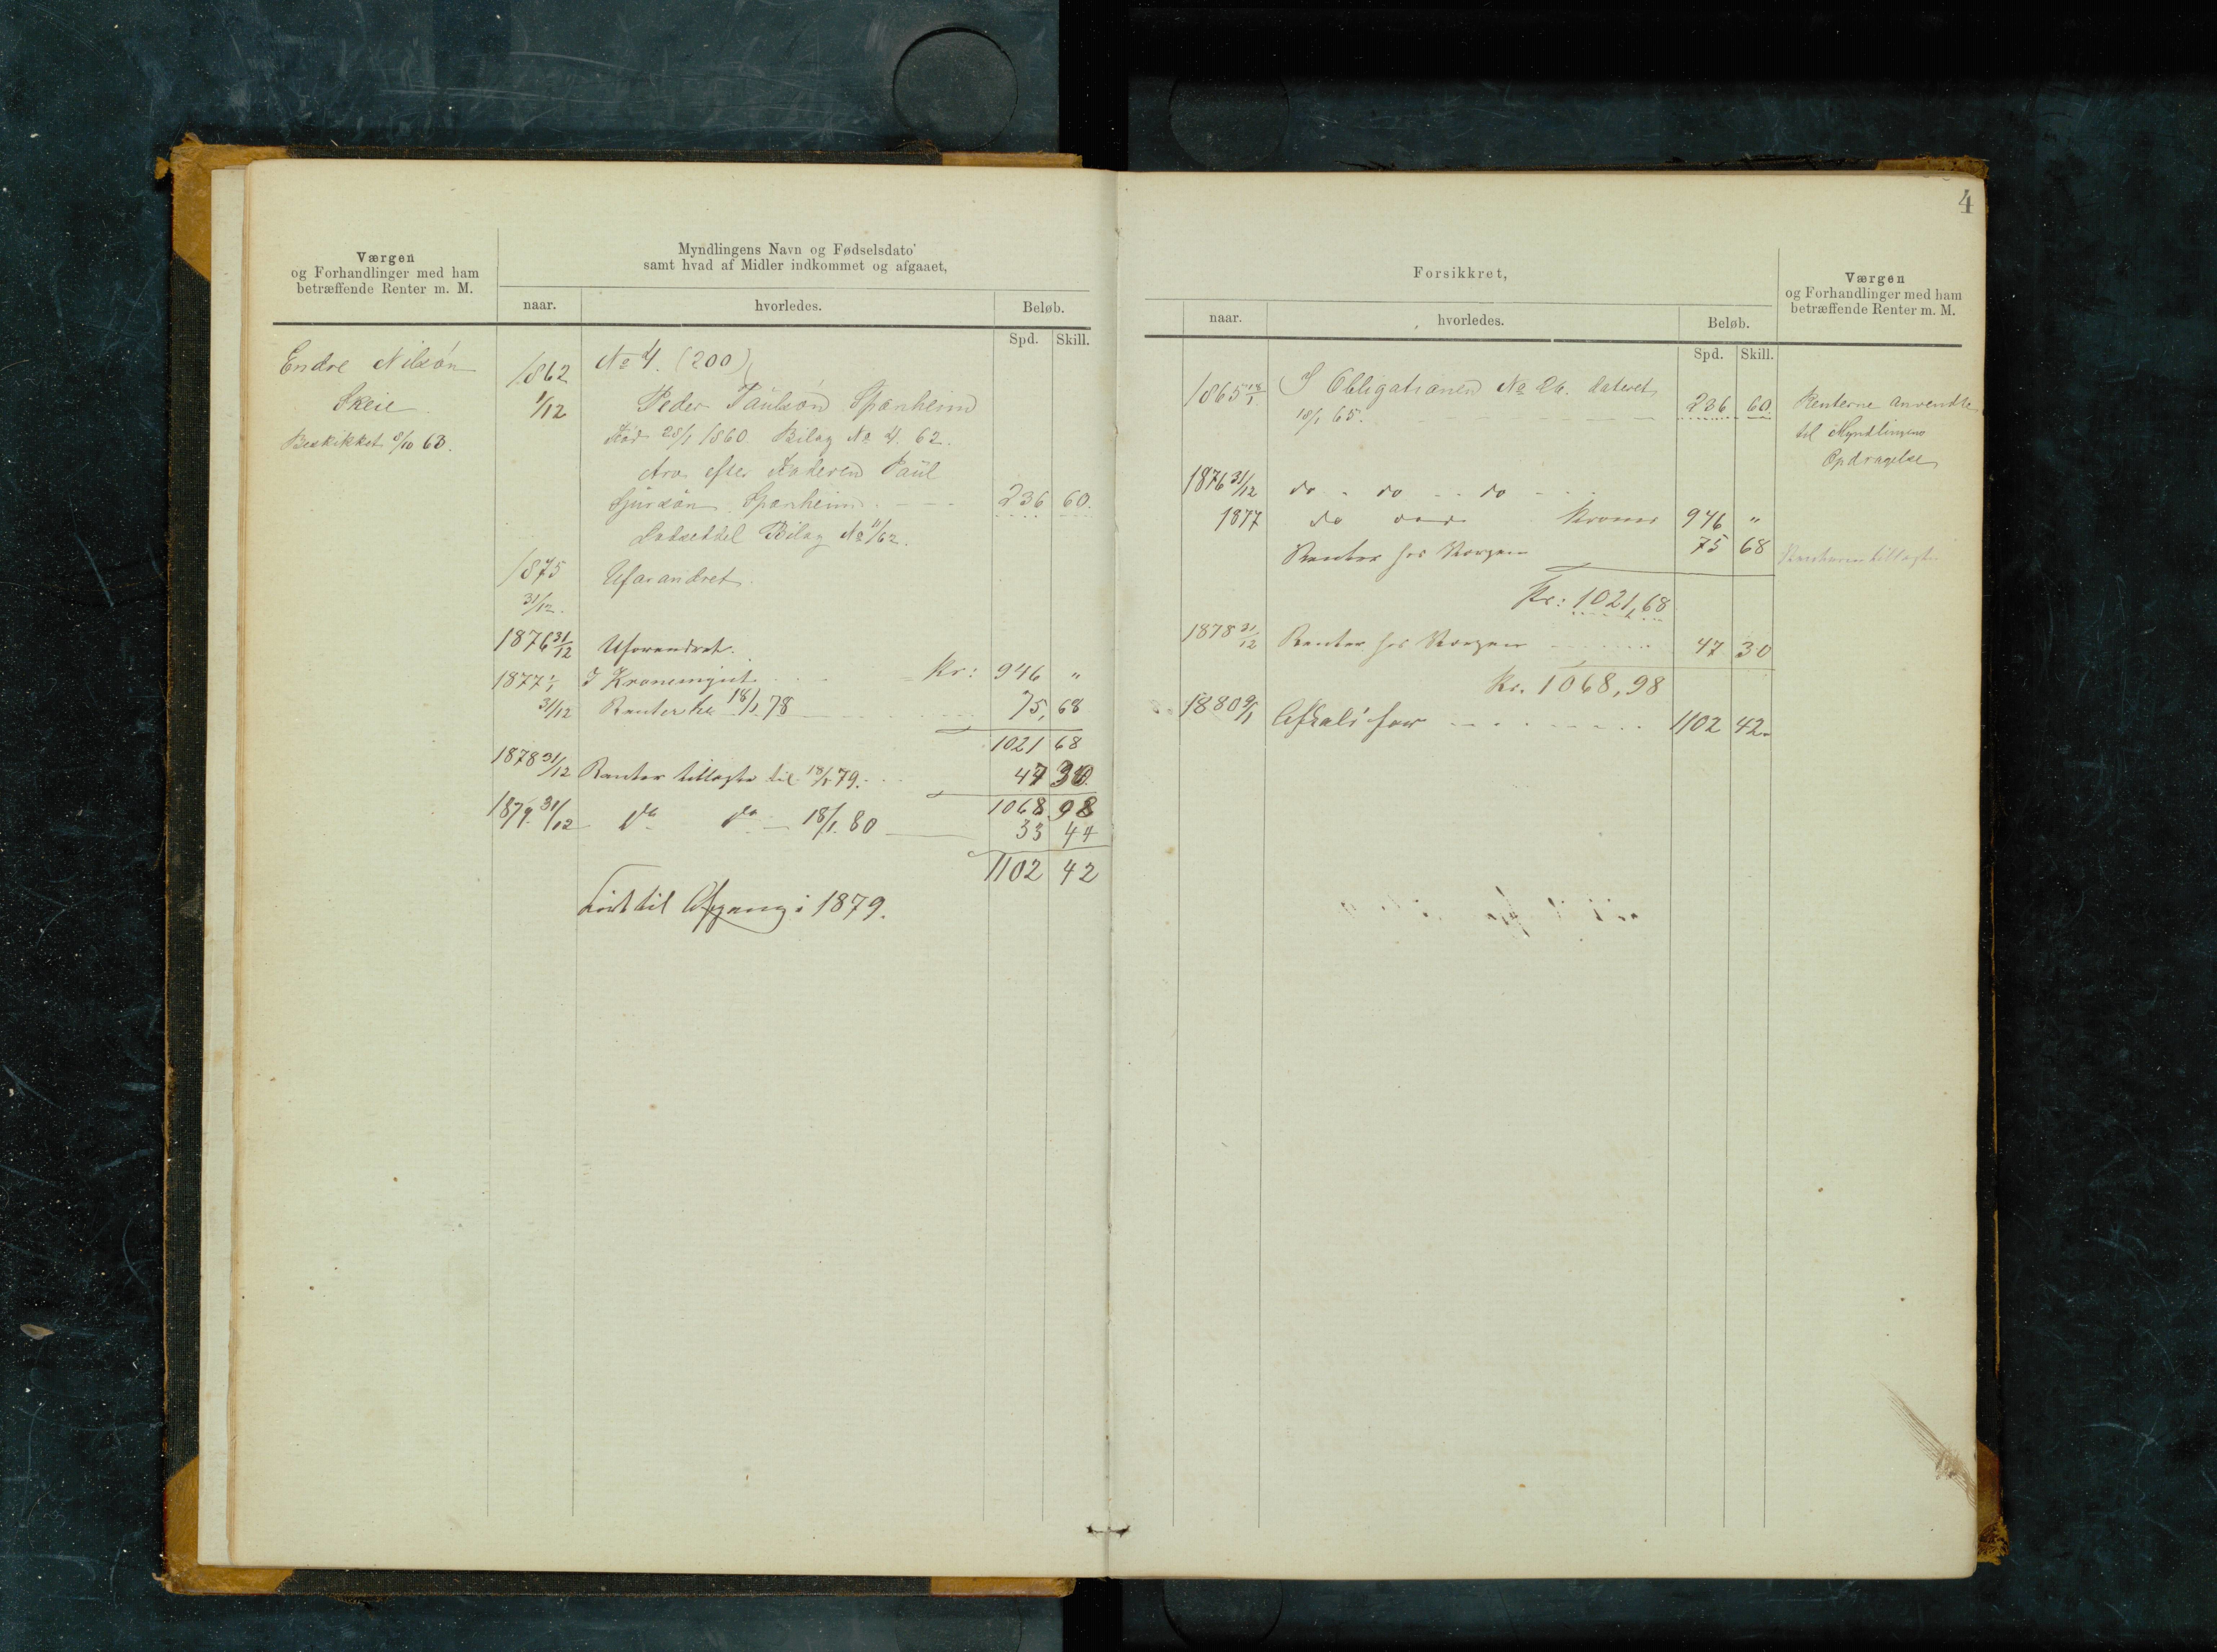 Værgen
og Forhandlinger med ham
betræffende Renter m. M.
Myndlingens Navn og Fødselsdato
samt hvad af Midler indkommet og afgaaet,
naar.
hvorledes.
Beløb.
Spd. Skill.
Endre Nilsön
Skeie
Beskikket 8/10 63.
1862 No 4. (200)
1/12 Peder Paulsön Spanheim
Död 28/1 1860. Bilag No 4. 62.
Arv efter Faderen Paul
Sjursön Spanheim. 236 60.
Bilag No 4/62.
1875 Uforandret.
31/12.
1876 31/12 Uforandret.
1877 1/1 I Kronemynt Kr: 946 "
31/12 Renter til 18/1 78 75,68
1021 68
1878 31/12 Renter tillagte til 18/1 79. 47 30.
1068.98
1879. 31/12 do do 18/1. 80 33 44
1102 42
Fört til Afgang i 1879.
4
Forsikkret,
Værgen
og Forhandlinger med ham
betræffende Renter m. M.
naar.
hvorledes.
Beløb.
Spd. Skill.
1865 18/1 I Obligationen No 26. dateret
18/1 65. 236 60.
Renterne anvendte
til Myndlingens
Opdragelse
1876 31/12 do do do
1877 do Kroner 946 "
Renter hos Værgen 75 68
Kr: 1021,68
1878 31/12 Renter hos Værgen 47 30
Kr. 1068,98
1880 9/1 1102 42.